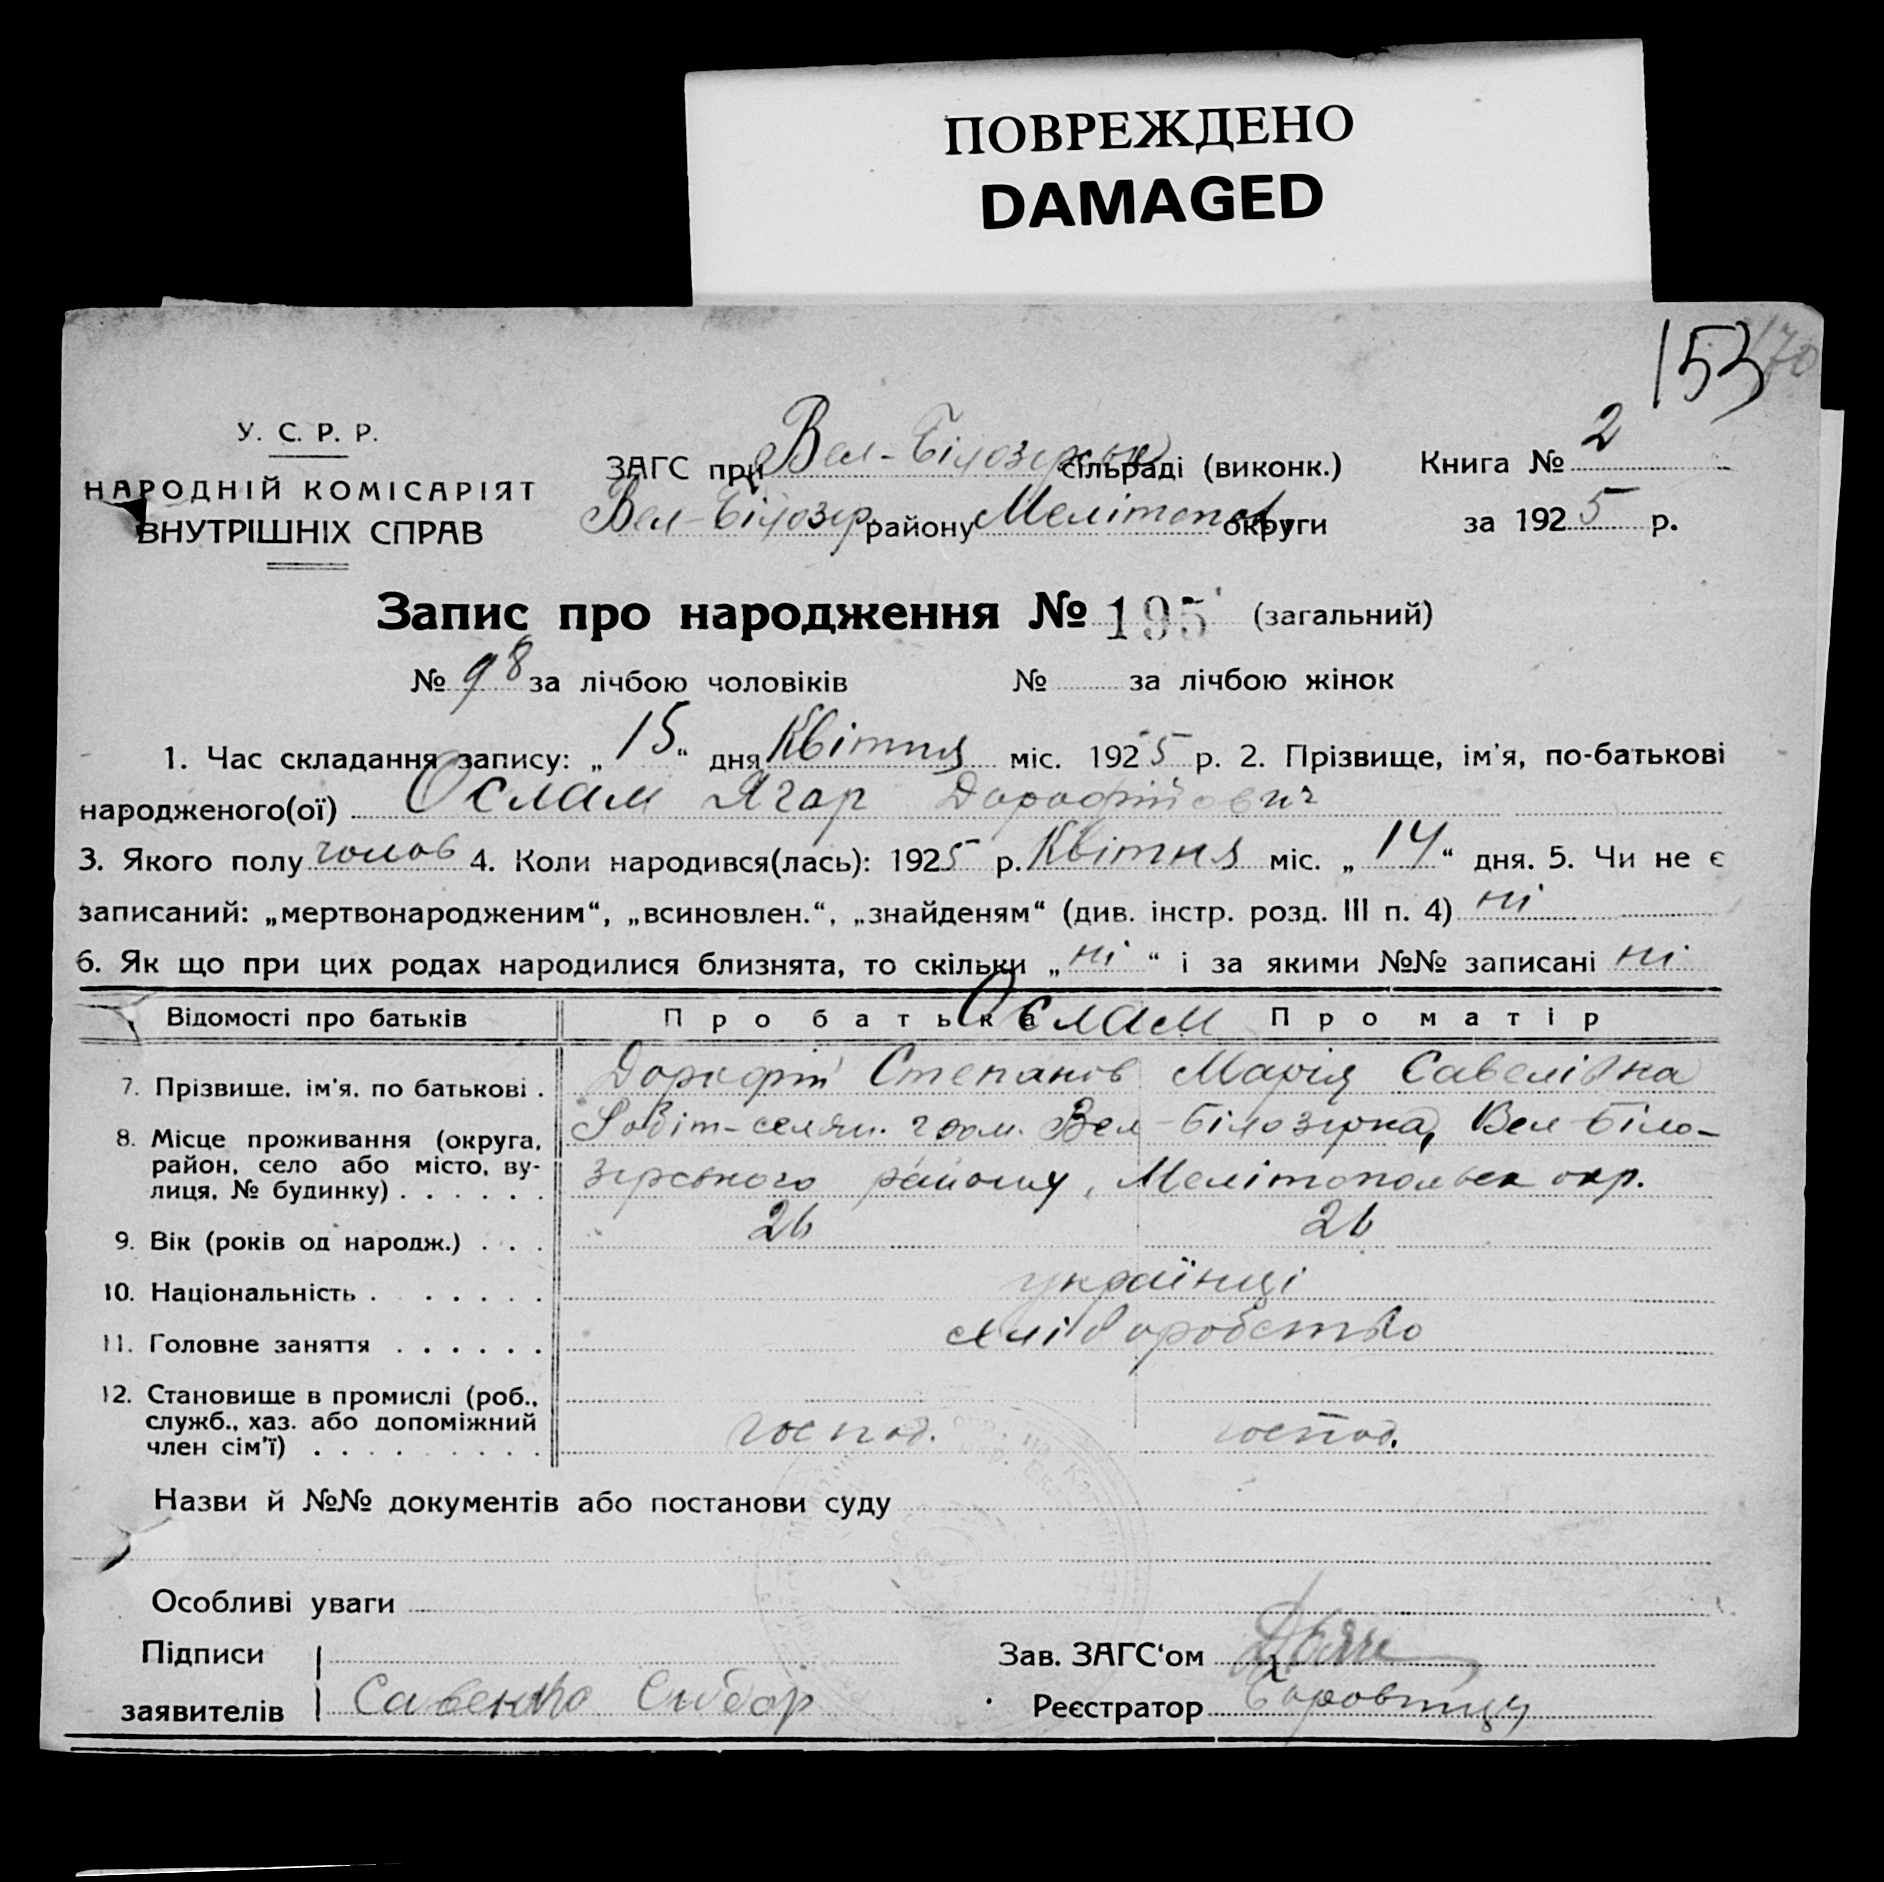 ПОВРЕЖДЕНО
DAMAGED
153
170
У. С. Р. Р.
НАРОДНІЙ КОМІСАРІЯТ
ВНУТРІШНІХ СПРАВ
ЗАГС при Вел-Білозерськ сільраді (виконк.)
Книга № 2
Вел-Білозір. району Мелітопол округи
за 1925 р.
Запис про народження № 195 (загальний)
№ 98 за лічбою чоловіків № за лічбою жінок
1. Час складання запису: „15“ дня Квітня міс. 1925 р. 2. Прізвище, ім'я, по-батькові
народженого(ої) Ослам Ягор Дорофійович
3. Якого полу чолов 4. Коли народився(лась): 1925 р. Квітня міс. „14“ дня. 5. Чи не є
записаний: „мертвонародженим“, „всиновлен.“, „знайденям“ (див. інстр. розд. III п. 4) ні
6. Як що при цих родах народилися близнята, то скільки „ні“ і за якими №№ записані ні
Відомості про батьків Про батька Ослам Про матір
7. Прізвище, ім'я, по батькові . Дорофій Степанов Марія Савелівна
8. Місце проживання (округа, район, село або місто, вулиця, № будинку) . . . . . .
-селян. гром. Вел-Білозірка, Вел-Біло-
зірського району, Мелітопольск окр.
9. Вік (років од народж.) . . . 26 26
10. Національність . . . . . . . українці
11. Головне заняття . . . . . . хліборобство
12. Становище в промислі (роб.,
служб., хаз. або допоміжний
член сім'ї) . . . . . . . . . господ. господ.
Назви й №№ документів або постанови суду
Особливі уваги
Підписи
заявителів Савенко
Зав. ЗАГС‘ом
Реєстратор